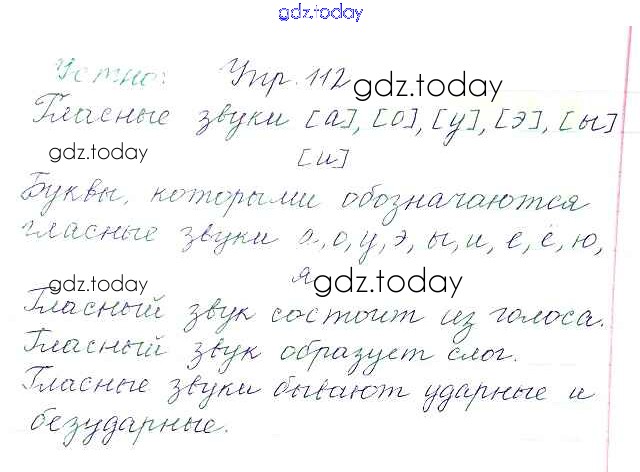 gdz.today
Устно: Упр. 112
gdz.today
Гласные звуки [а], [о], [у], [э], [ы]
gdz.today
[и]
Буквы, которыми обозначаются
гласные звуки а, о, у, э, ы, и, е, ё, ю,
я
gdz.today
gdz.today
Гласный звук состоит из голоса.
Гласный звук образует слог.
Гласные звуки бывают ударные и
безударные.